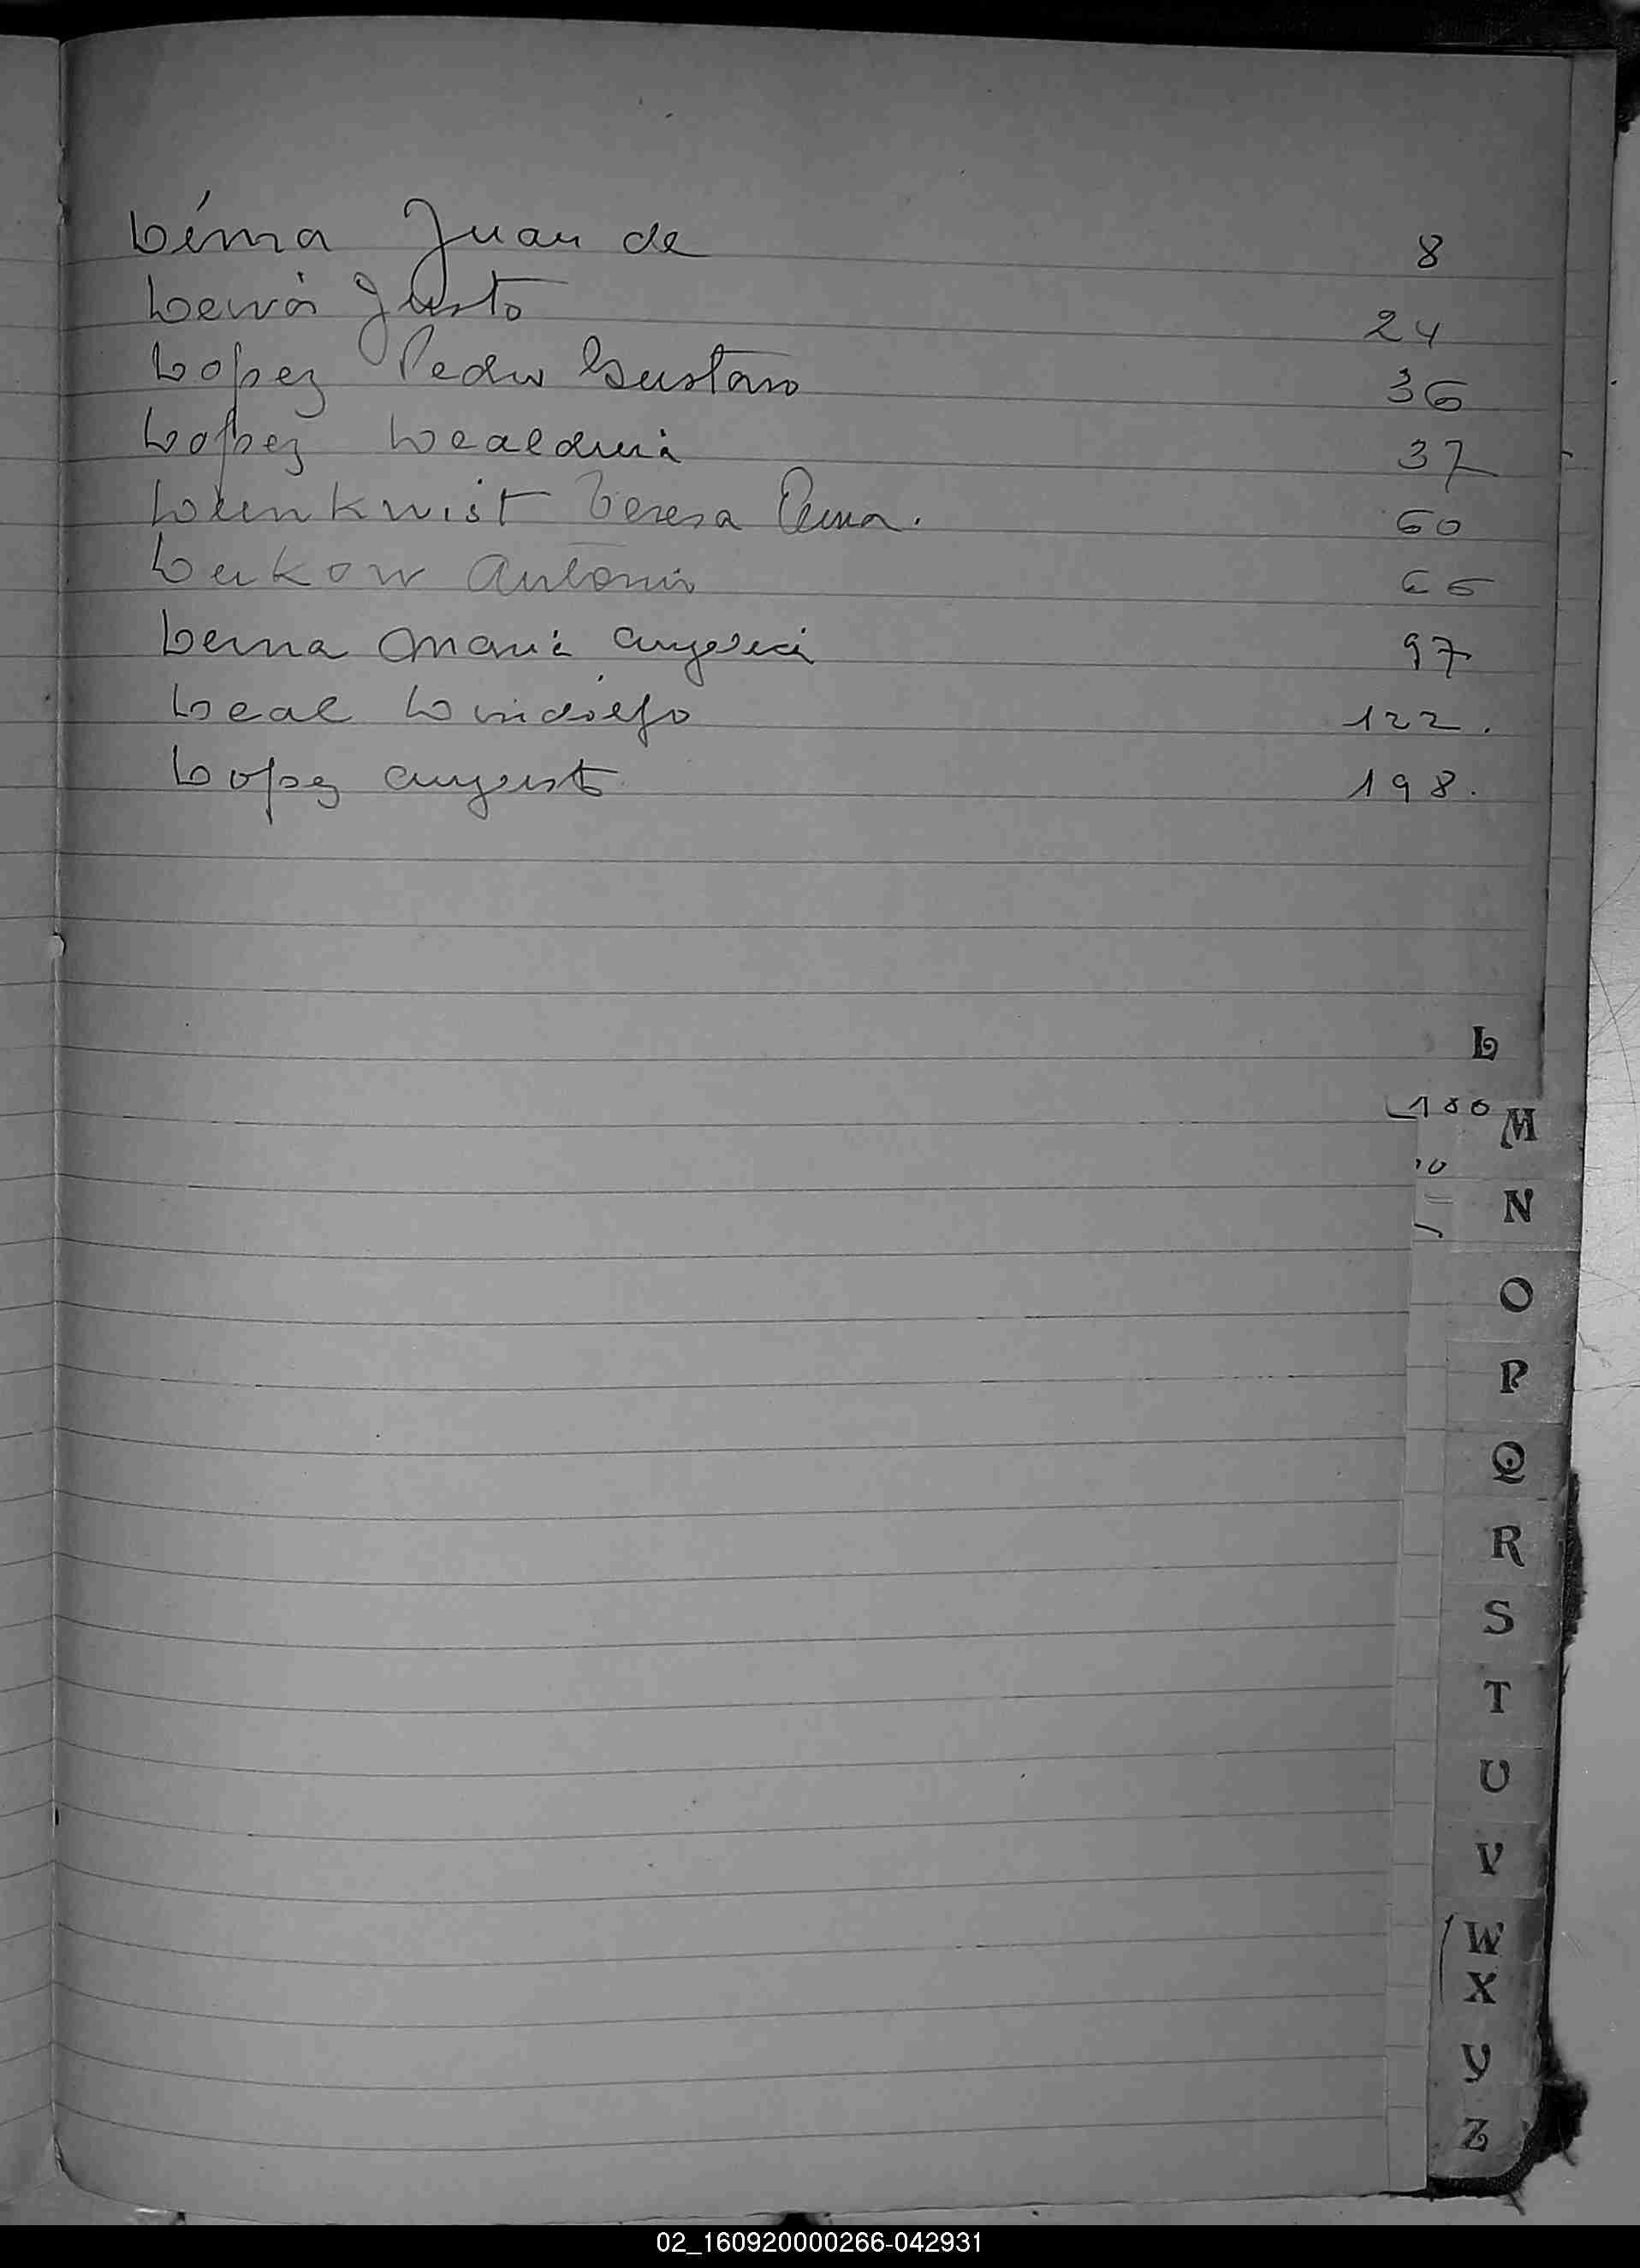 Léma Juan de 8
Lewó Justo 24
Lopez Pedro Gustavo 36
Lopez 37
Leenkwist Teresa Ema. 60
Leukow Antonio 66
Lema Maria Angelica 97
Leal Lindolfo 122.
Lopez Augusto 198.
L
186 M
N
O
P
Q
R
S
T
U
V
W
X
Y
Z
02_160920000266-042931